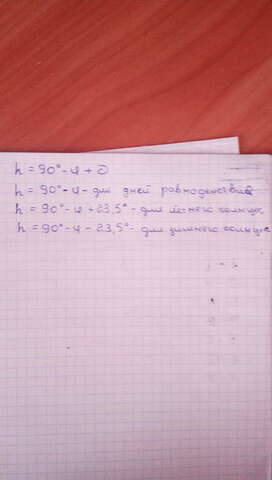 h = 90° - φ + δ
h = 90° - φ - для дней равноденствия
h = 90° - φ + 23,5° - для летнего солнцес
h = 90° - φ - 23,5° - для зимнего солнцес